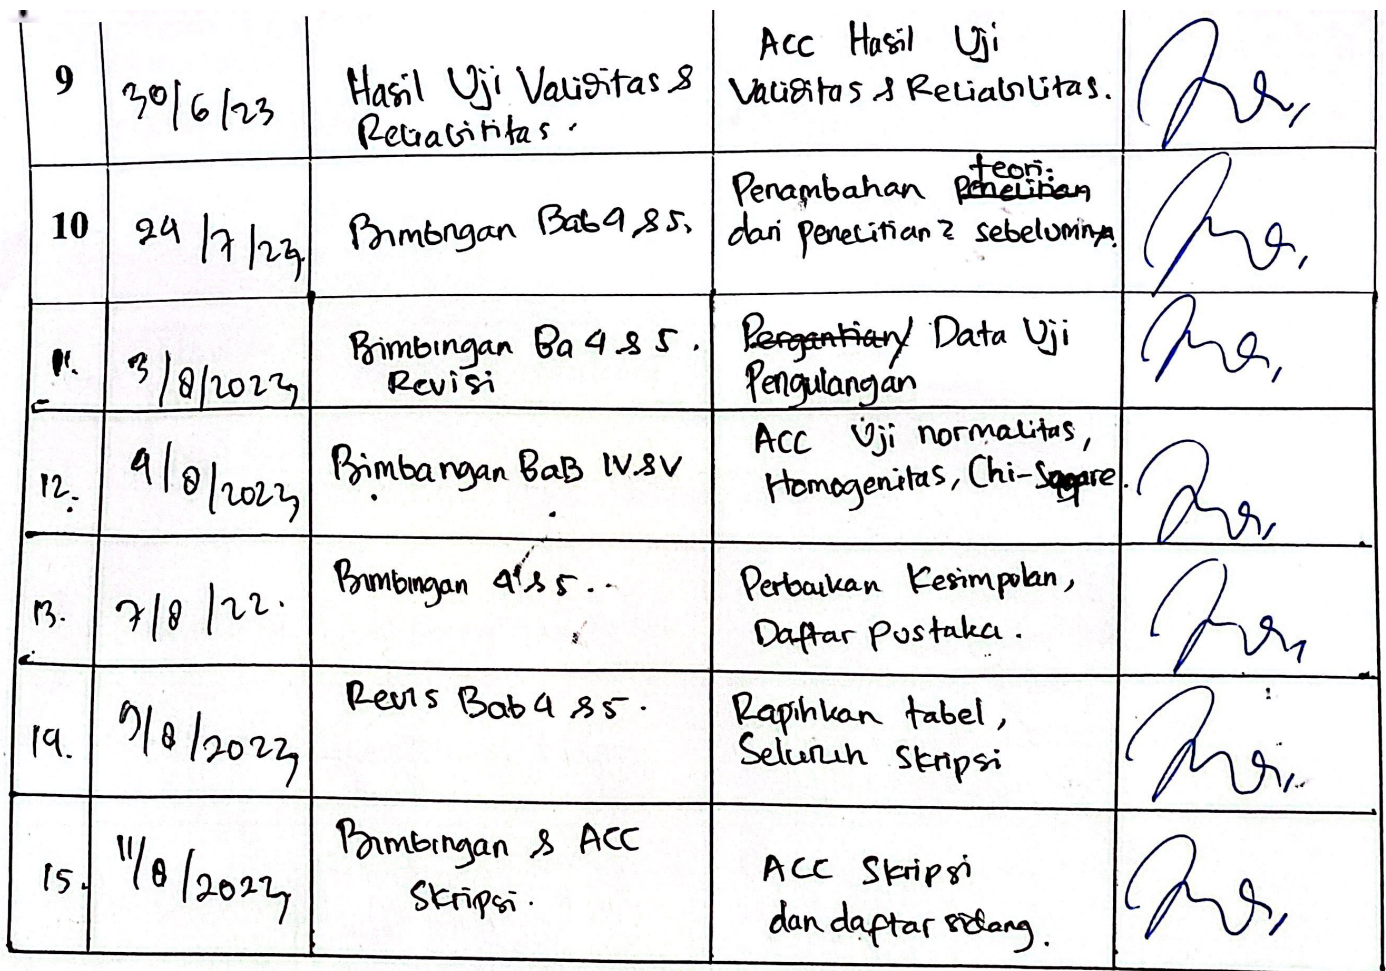 9
30/6/23
Hasil Uji Validitas &
Reliabilitas.
ACC Hasil Uji
Validitas & Reliabilitas.
10
24/7/23
Bimbngan Bab 4 & 5.
teori.
Penambahan Penelitian
dari penelitian2 sebelumnya.
11.
3/8/2023
Bimbingan Ba 4 & 5.
Revisi
Pergantian/ Data Uji
Pengulangan
12.
4/8/2023
Bimbangan BaB IV & V
ACC Uji normalitas,
Homogenitas, Chi-Sqare.
13.
7/8/22.
Bimbingan 4 & 5..
Perbaikan Kesimpulan,
Daftar pustaka.
14.
9/8/2023
Revis Bab 4 & 5.
Rapihkan tabel,
Seluruh Skripsi
15.
11/8/2023
Bimbingan & ACC
Skripsi.
ACC Skripsi
dan daftar sidang.